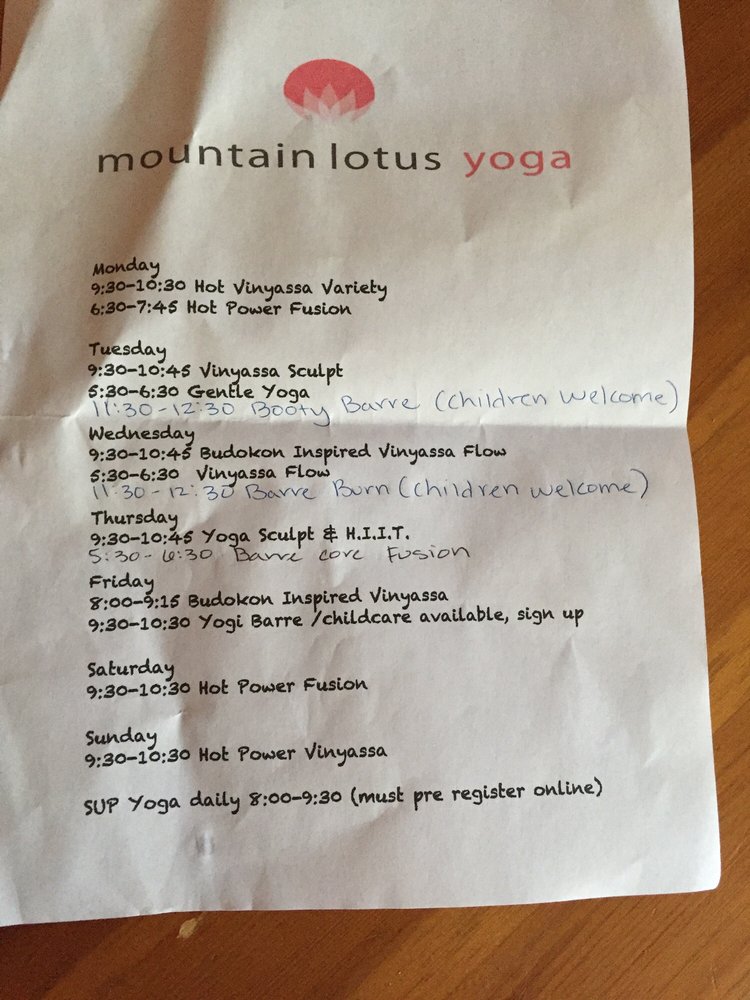 mountain lotus yoga
Monday
9:30-10:30 Hot Vinyassa Variety
6:30-7:45 Hot Power Fusion
Tuesday
9:30-10:45 Vinyassa Sculpt
5:30-6:30 Gentle Yoga
11:30-12:30 Booty Barre (children welcome)
Wednesday
9:30-10:45 Budokon Inspired Vinyassa Flow
5:30-6:30 Vinyassa Flow
11:30-12:30 Barre Burn (children welcome)
Thursday
9:30-10:45 Yoga Sculpt & H.I.I.T.
5:30-6:30 Barre core Fusion
Friday
8:00-9:15 Budokon Inspired Vinyassa
9:30-10:30 Yogi Barre /childcare available, sign up
Saturday
9:30-10:30 Hot Power Fusion
Sunday
9:30-10:30 Hot Power Vinyassa
SUP Yoga daily 8:00-9:30 (must pre register online)